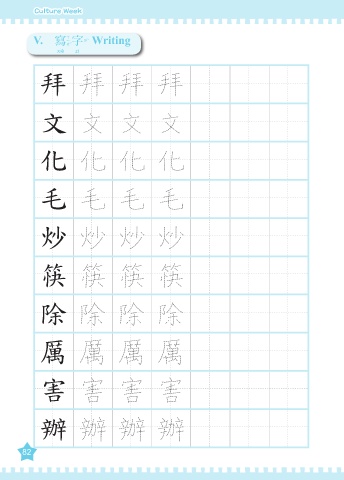 Culture Week
V. 寫字 Writing
拜 拜 拜 拜
文 文 文 文
化 化 化 化
毛 毛 毛 毛
炒 炒 炒 炒
筷 筷 筷 筷
除 除 除 除
厲 厲 厲 厲
害 害 害 害
辦 辦 辦 辦
82